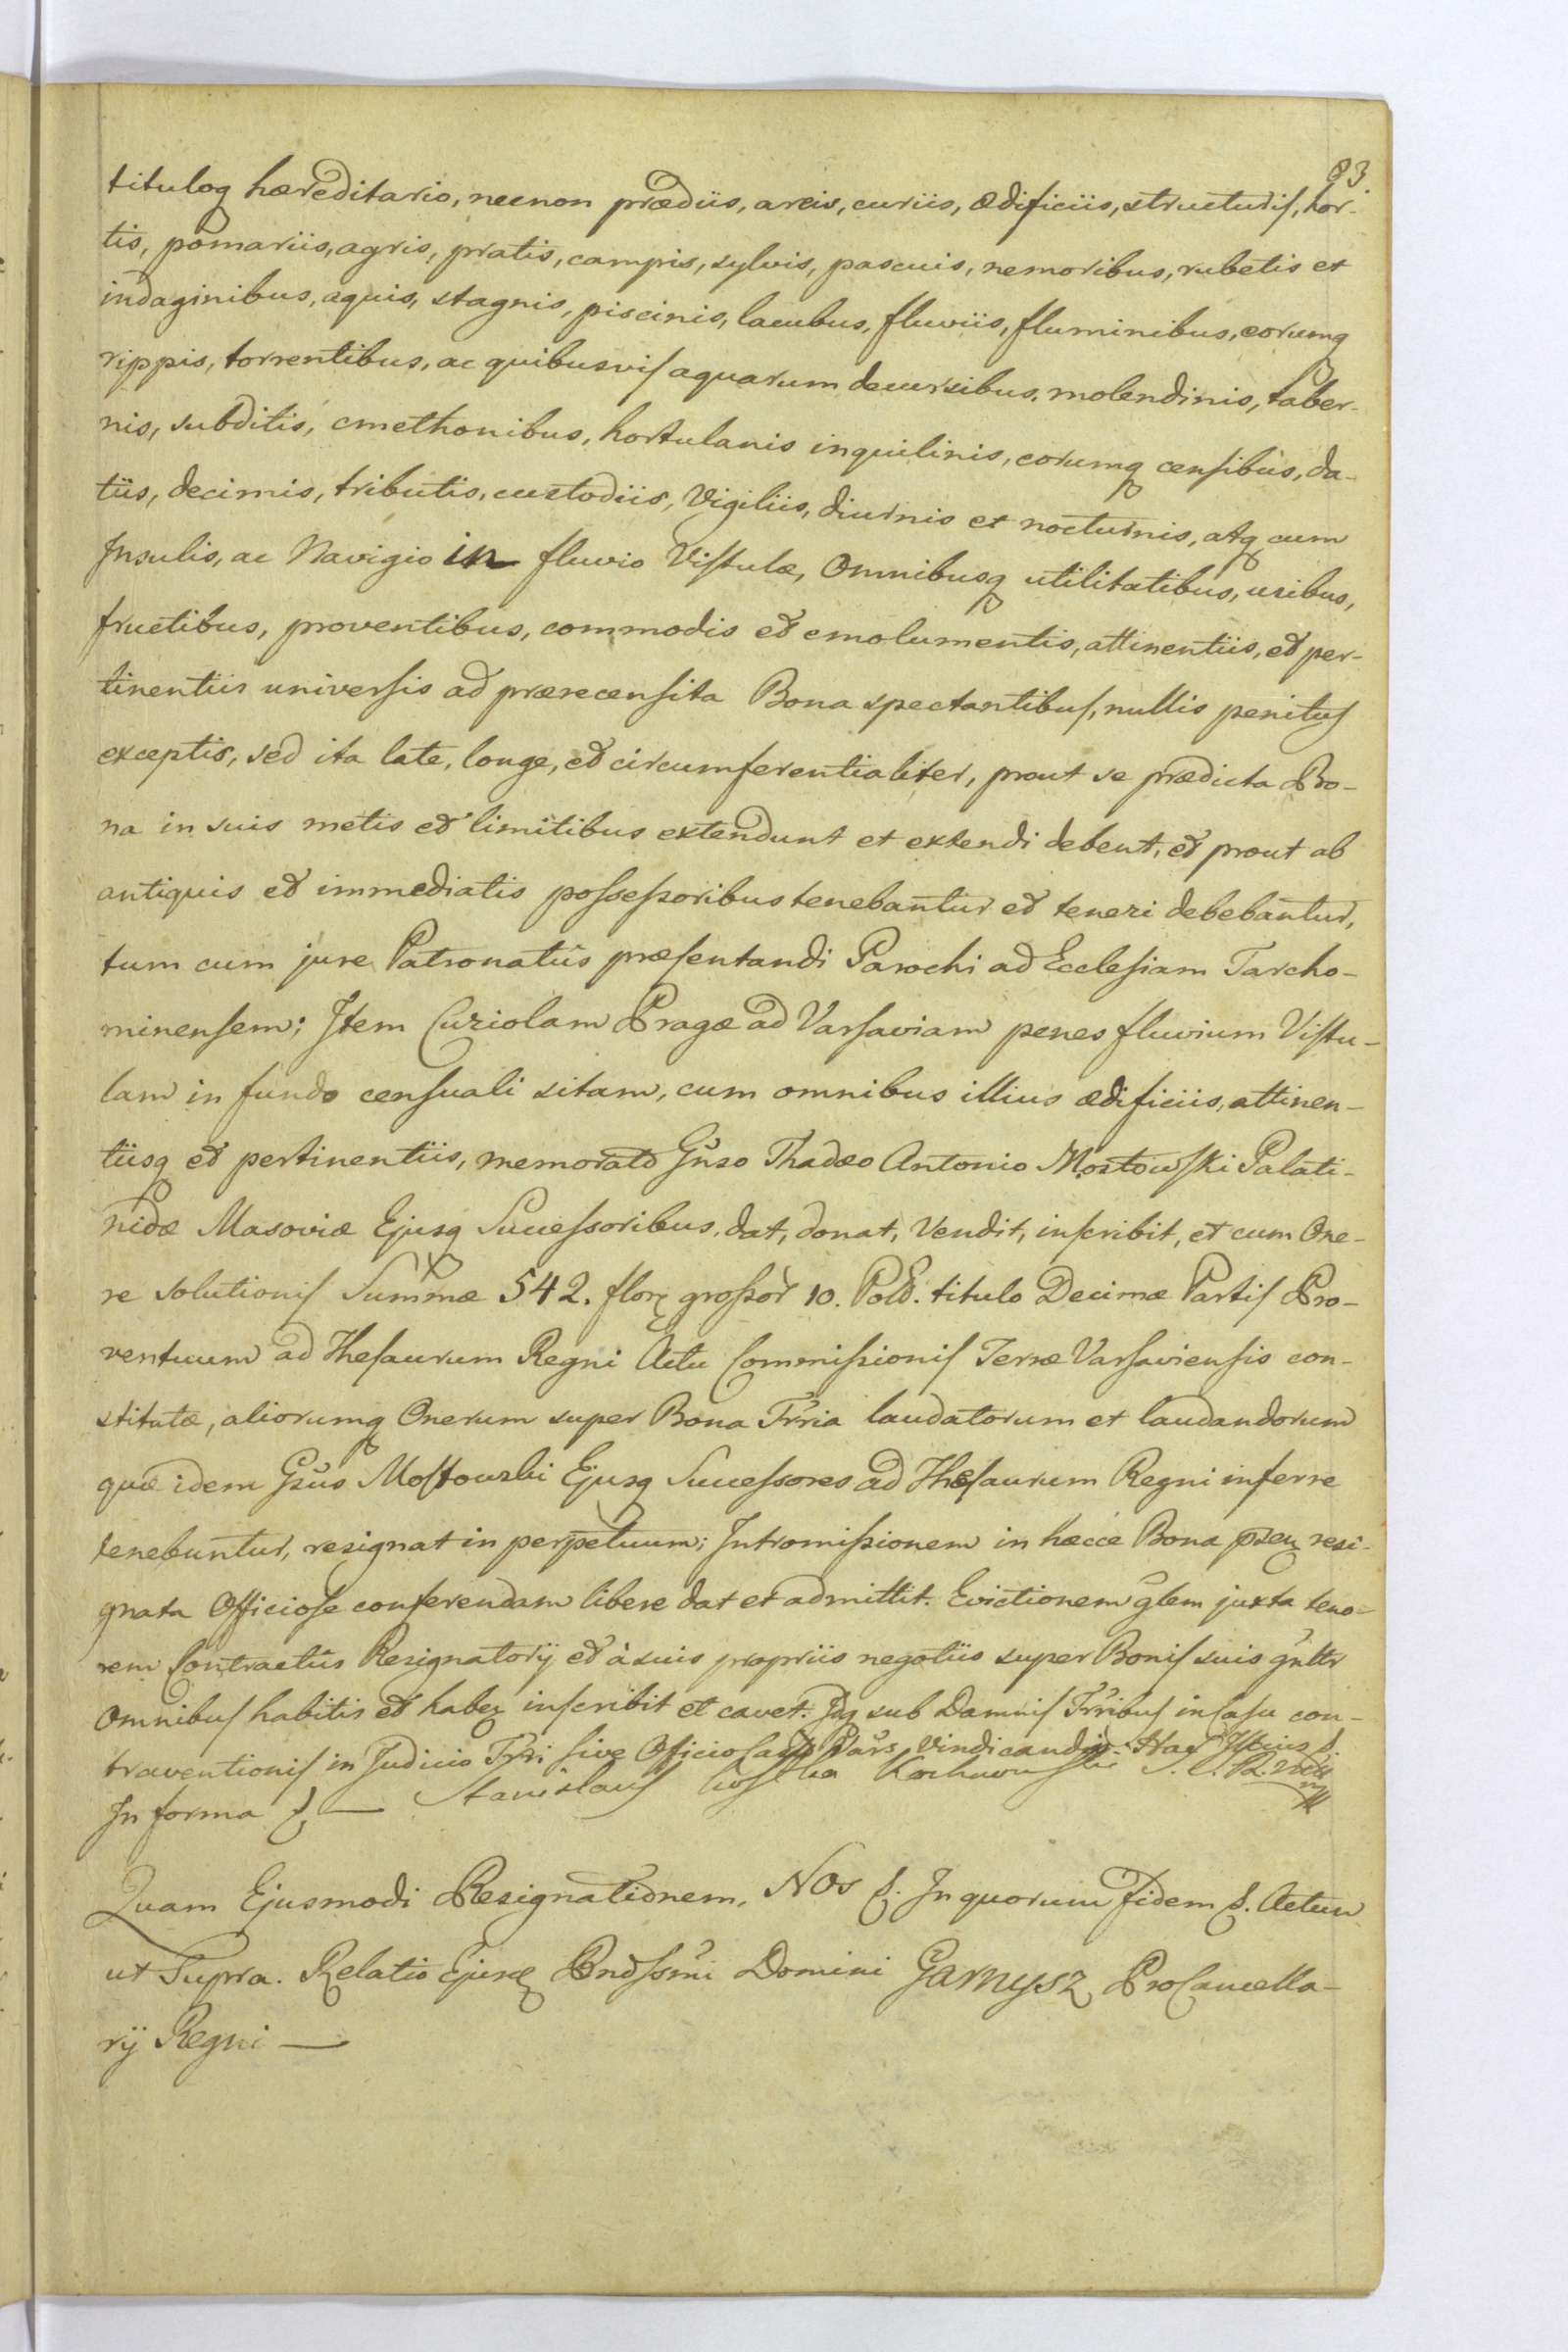 93.
tituloq hæreditario, necnon prædiis, areis, curiis, ædificiis, structuris, hor-
tis, pomariis, agris, pratis, campis, sylvis, pascuis, nemoribus, rubetis et
indaginibus, aquis, stagnis, piscinis, lacubus, fluviis, fluminibus, eorumq
rippis, torrentibus, ac quibusvis aquarum decursibus, molendinis, taber-
nis, subditis, cmethonibus, hortulanis inquilinis, eorumq censibus, da-
tiis, decimis, tributis, custodiis, Vigiliis, diurnis et nocturnis, atq cum
Insulis, ac Navigio in fluvio Vistulæ, Omnibusq utilitatibus, usibus,
fructibus, proventibus, commodis et emolumentis, attinentiis, et per-
tinentiis universis ad prærecensita Bona spectantibus, nullis penitus
exceptis, sed ita late, longe, et circumferentialiter, prout se prædicta Bo-
na in suis metis et limitibus extendunt et extendi debent, et prout ab
antiquis et immediatis possessoribus tenebantur et teneri debebantur,
tum cum jure Patronatûs præsentandi Parochi ad Ecclesiam Tarcho-
minensem; Item Curiolam Pragæ ad Varsaviam penes fluvium Vistu-
lam in fundo censuali sitam, cum omnibus illius ædificiis, attinen-
tiisq et pertinentiis, memorato Gnso Thadæo Antonio Mostowski Palati-
nidæ Masoviæ Ejusq Successoribus, dat, donat, Vendit, inscribit, et cum One-
re solutionis Summæ 542. flor grossor 10. Pold. titulo Decimæ Partis Pro-
ventuum ad Thesaurum Regni Actu Commissionis Terræ Varsaviensis con-
stitutæ, aliorumq Onerum super Bona Trria laudatorum et laudandorum
quæ idem Gsus Mostowski Ejusq Successores ad Thesaurum Regni inferre
tenebuntur, resignat in perpetuum; Intromissionem in hæcce Bona resi-
gnata Officiose conferendam libere dat et admittit. Evictionem glem juxta teno-
rem Contractûs Resignatorij et à suis propriis negotiis super Bonis suis gnltr
Omnibus habitis et haben inscribit et cavet. Idq sub Damnis Trribus in Casu con-
traventionis in Judicio Trri sive Officio Vindicandis. Hac
In forma Stanislaus Kostka
Quam Ejusmodi Resignationem, Nos In quorum fidem Actum
ut Supra. Relatio Ejusd Rndssmi Domini Garnysz ProCancella-
rij Regni —